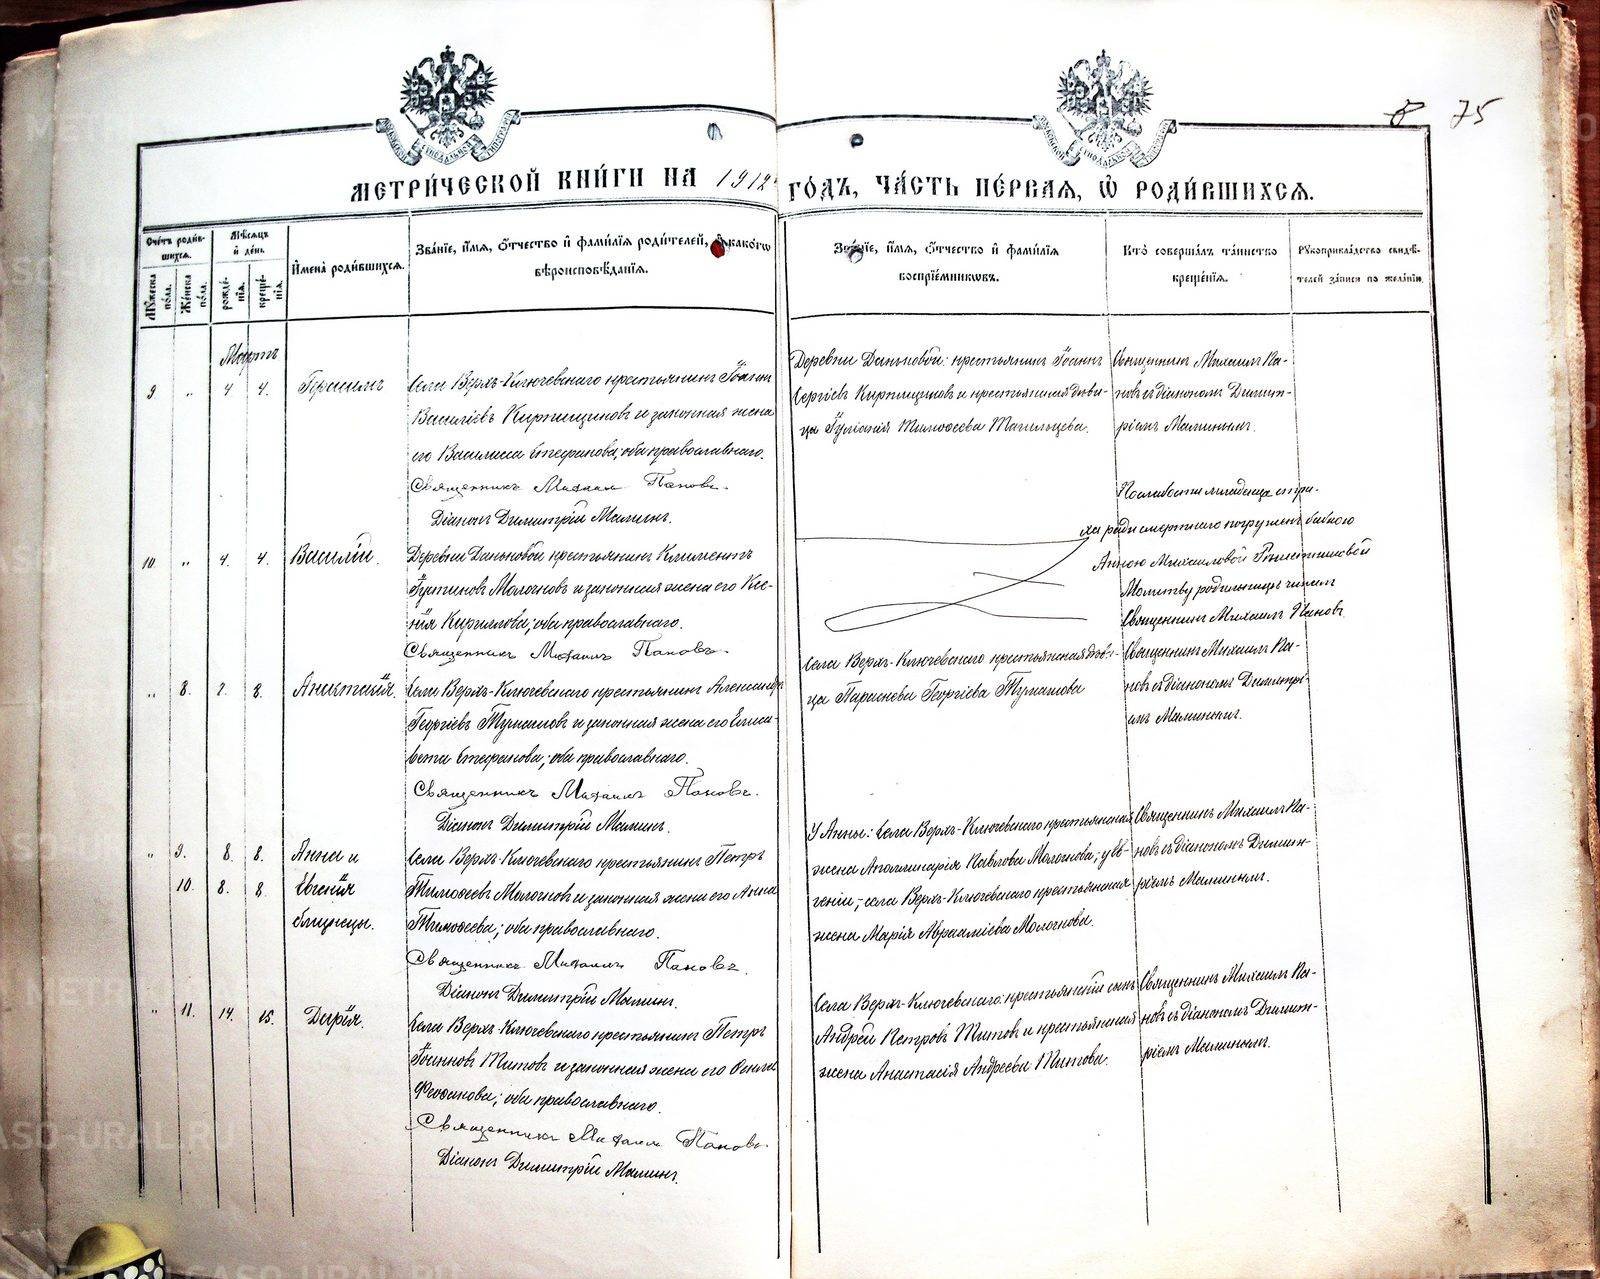 75
МЕТРИЧЕСКОЙ КНИГИ НА 1912 ГОДЪ, ЧАСТЬ ПЕРВАЯ, Ѡ РОДИВШИХСЯ.
Счетъ родив-
шихся.
Мужеска
пола.
Женска
пола.
Мѣсяцъ
и день.
рожде-
нія.
креще-
нія.
Имена родившихся.
Званіе, имя, отчество и фамилія родителей, и какого
вѣроисповѣданія.
Званіе, имя, отчество и фамилія
воспріемниковъ.
Кто совершалъ таинство
крещенія.
Рукоприкладство свидѣ-
телей записи по желанію.
Мартъ
9 „ 4 4. Герасимъ
Села Верхъ-Ключевскаго крестьянинъ Іоаннъ
Василіевъ Кирпищиковъ и законная жена
его Василиса Стефанова; оба православнаго.
Священникъ Михаилъ Пановъ.
Діаконъ Димитрій Маминъ.
Деревни Даньковой: крестьянинъ Іоаннъ
Сергіевъ Кирпищиковъ и крестьянская дѣви-
ца Іуліанія Тимофеева Тагильцева.
Священникъ Михаилъ Па-
новъ съ діакономъ Димит-
ріемъ Маминымъ.
10 „ 4. 4. Василій.
Деревни Даньковой крестьянинъ Климентъ
Іустиновъ Молочковъ и законная жена его Ксе-
нія Кириллова; оба православнаго.
Священникъ Михаилъ Пановъ.
По слабости младенца стра-
ха ради смертнаго погруженъ бабкою
Анною Михаиловой
Молитву родильницѣ читалъ
Священникъ Михаилъ Пановъ.
„ 8. 7. 8. Анастасія.
Села Верхъ-Ключевскаго крестьянинъ Александръ
Георгіевъ Тумашовъ и законная жена его Елиса-
вета Стефанова; оба православнаго.
Священникъ Михаилъ Пановъ.
Діаконъ Димитрій Маминъ.
Села Верхъ-Ключевскаго крестьянская дѣви-
ца Параскева Георгіева Тумашова
Священникъ Михаилъ Па-
новъ съ діакономъ Димитрі-
емъ Маминымъ.
„ 9. 8. 8. Анна и
10. 8. 8. Евгенія
близнецы.
Села Верхъ-Ключевскаго крестьянинъ Петръ
Тимофеевъ Молочковъ и законная жена его Анна
Тимофеева; оба православнаго.
Священникъ Михаилъ Пановъ.
Діаконъ Димитрій Маминъ.
У Анны: Села Верхъ-Ключевскаго крестьянская
жена Аполлинарія Павлова Молочкова; у Ев-
геніи,- села Верхъ-Ключевскаго крестьянская
жена Марія Авраамiева Молочкова.
Священникъ Михаилъ Па-
новъ съ діакономъ Димит-
ріемъ Маминымъ.
„ 11. 14. 15. Дарія.
Села Верхъ-Ключевскаго крестьянинъ Петръ
Іоанновъ Титовъ и законная жена его
Феофанова; оба православнаго.
Священникъ Михаилъ Пановъ.
Діаконъ Димитрій Маминъ.
Села Верхъ-Ключевскаго: крестьянскій сынъ
Андрей Петровъ Титовъ и крестьянская
жена Анастасія Андреева Титова.
Священникъ Михаилъ Па-
новъ съ діакономъ Димит-
ріемъ Маминымъ.